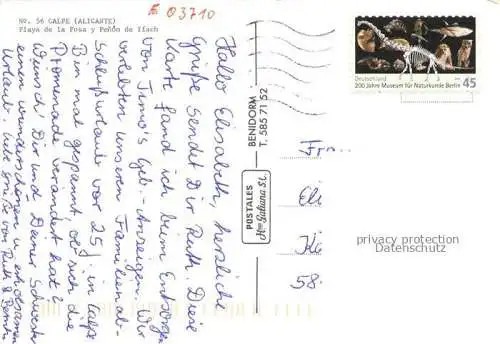 No. 56 CALPE (ALICANTE)
Playa de la Fosa y Peñón de Ifach
E 03710
Hallo Elisabeth, herzliche
Grüße sendet Dir Ruth. Diese
Karte fand ich beim Entsorgen
von Timo's Geb.-Anzeigen. Wir
verlebten unseren Familienab-
schlußurlaub vor 25 J. in Calpe
Bin mal gespannt, ob sich die
Promenade verändert hat?
Wünsch' Dir und Deiner Schwester
einen wunderschönen u. erholsamen
Urlaub. Liebe Grüße von Ruth &
BENIDORM
T. 585 71 52
POSTALES
Hnos Galiana S.L.
Deutschland
200 Jahre Museum für Naturkunde Berlin
45
Frn.
Eli
Kl
58
privacy protection
Datenschutz